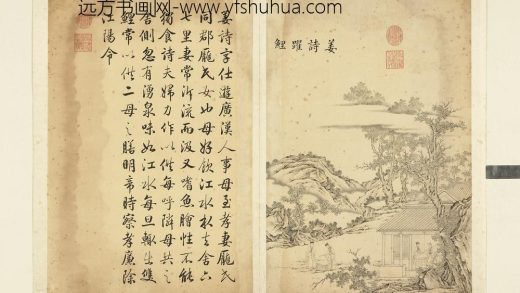 远方书画网-www.yfshuhua.com
姜詩躍鯉
姜詩字仕遊廣漢人事母至孝妻龐氏
同郡龐氏女也母好飲江水水去舍六
七里妻常泝流而汲又嗜魚膾性不能
獨食詩夫婦力作以供每呼隣母共之
舍側忽有湧泉味如江水每旦輙出雙
鯉常以供二母之膳明帝時察孝廉除
江陽令